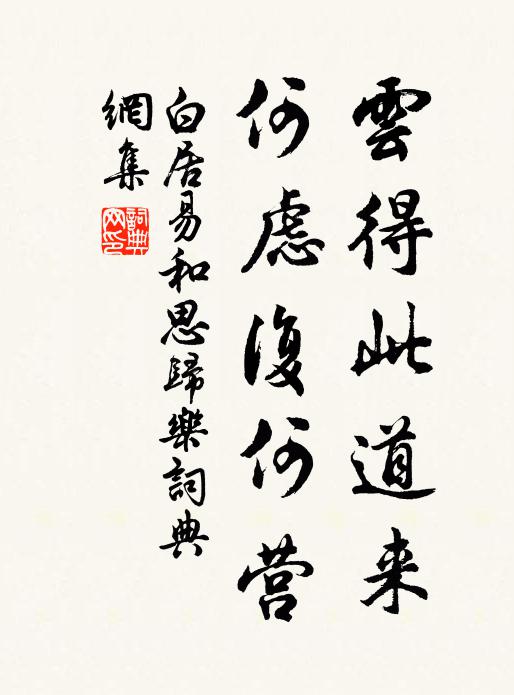 雲得此道来
何慮復何营
白居易和思歸樂詞典
網集
詞典网印